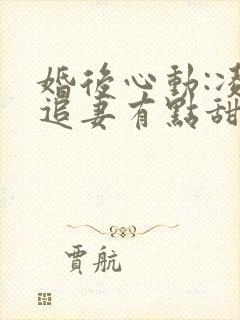 婚後心動:凌
追妻有點甜
賈航